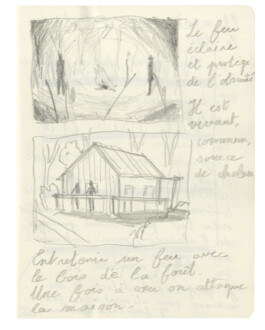 Le feu
éclaire
et protège
de l'obscurité
Il est
vivant,
source
de chaleur
Entretenir un feu avec
le bois de la forêt.
Une fois à on attaque
la maison.